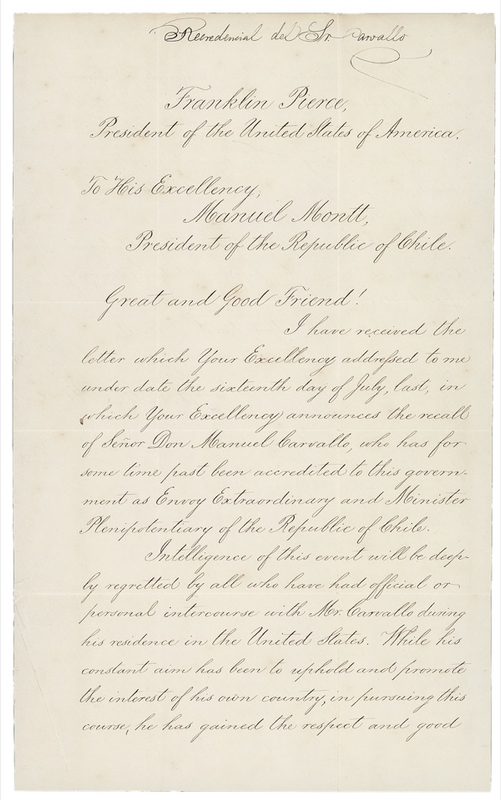 Recredencial del Sr. Carvallo
Franklin Pierce,
President of the United States of America.
To His Excellency,
Manuel Montt,
President of the Republic of Chile.
Great and Good Friend!
I have received the
letter which Your Excellency addressed to me
under date the sixteenth day of July, last, in
which Your Excellency announces the recall
of Señor Don Manuel Carvallo, who has for
some time past been accredited to this govern-
ment as Envoy Extraordinary and Minister
Plenipotentiary of the Republic of Chile.
Intelligence of this event will be deep-
ly regretted by all who have had official or
personal intercourse with Mr. Carvallo during
his residence in the United States. While his
constant aim has been to uphold and promote
the interest of his own country, in pursuing this
course, he has gained the respect and good